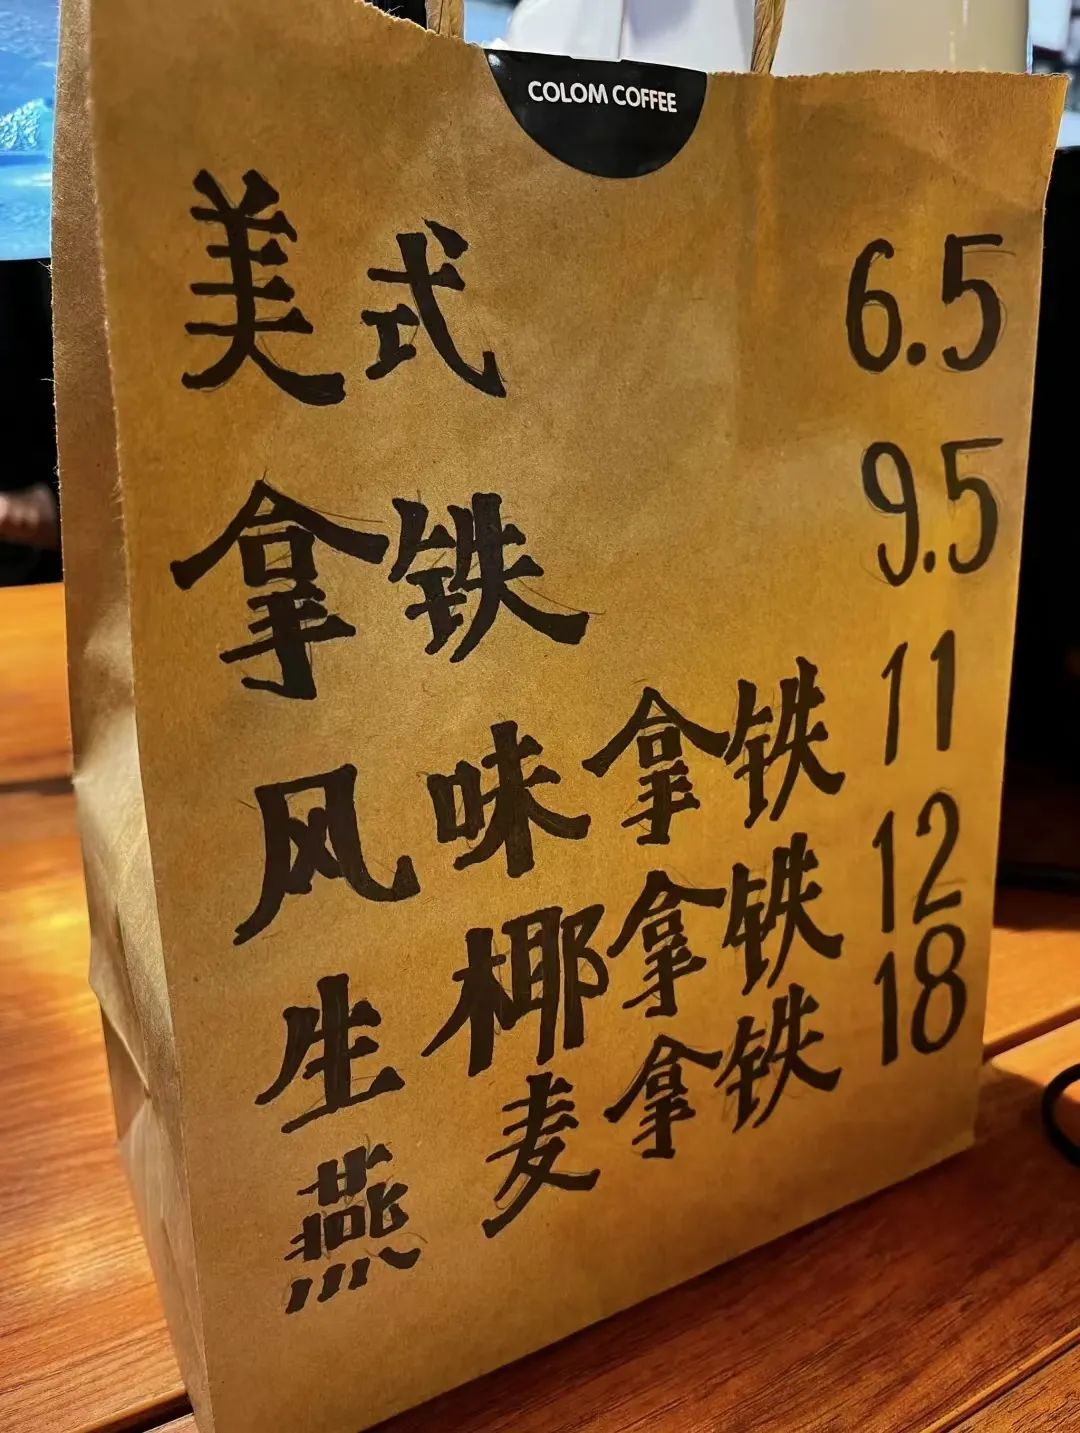 COLOM COFFEE
美式 6.5
拿铁 9.5
风味拿铁 11
生椰拿铁 12
燕麦拿铁 18